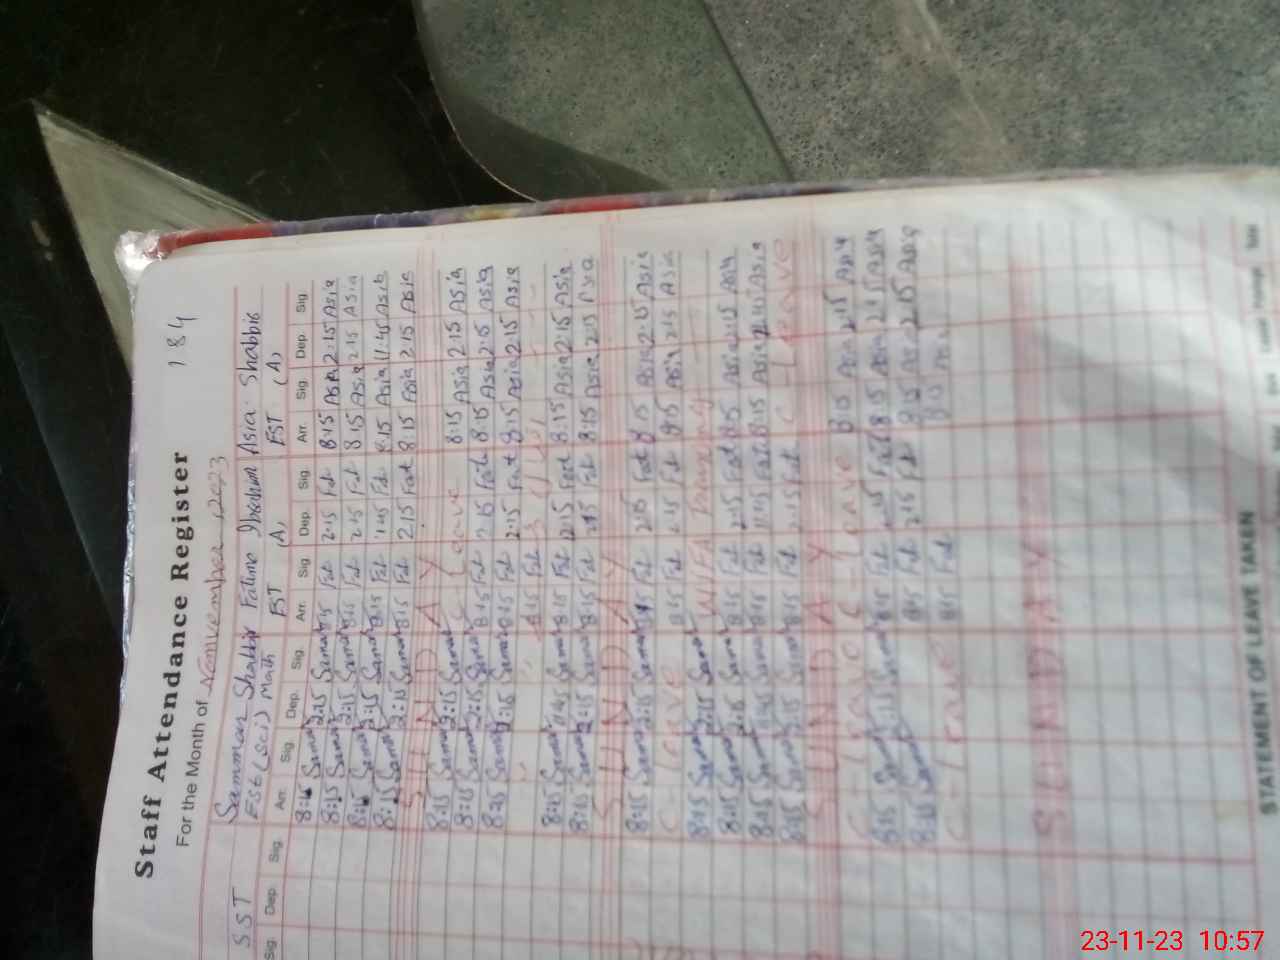 184
Staff Attendance Register
For the Month of November 2023
SST Samman Shabbir Fatima Ibrahim Asia Shabbir
EST (Sci) Math EST (A) EST (A)
Sig. Dep. Sig. Arr. Sig. Dep. Sig. Arr. Sig Dep. Sig Arr. Sig Dep. Sig
8:15 Saman 2:15 Saman 8:15 Fat 2.15 Fat 8.15 Asia 2.15 Asia
8:15 Saman 2:15 Saman 8:15 Fat 2.15 Fat 8.15 Asia 2.15 Asia
8:15 Saman 2:15 Saman 8:15 Fat 1:45 Fat 8.15 Asia 11.45 Asia
8:15 Saman 2:15 Saman 8:15 Fat 2.15 Fat 8.15 Asia 2.15 Asia
SUNDAY
8:15 Saman 2:15 Saman C-Leave 8:15 Asia 2:15 Asia
8:15 Saman 2:15 Saman 8.15 Fat 2.15 Fat 8.15 Asia 2.15 Asia
8:15 Saman 2:15 Saman 8:15 Fat 2.15 Fat 8.15 Asia 2.15 Asia
8:15 Fat
8:15 Saman Saman 8.15 Fat 2:15 Fat 8:15 Asia 2.15 Asia
8:15 Saman 2:15 Saman 8:15 Fat 2:15 Fat 8:15 Asia 2:15 Asia
SUNDAY
8:15 Saman 2:15 Saman 8:15 Fat 2:15 Fat 8:15 Asia 2:15 Asia
C-Leave 8:15 Fat 2.15 Fat 8:15 Asia 2.15 Asia
8:15 Saman 2:15 Saman Training
8:15 Saman 2:15 Saman 8:15 Fat 2:15 Fat 8:15 Asia 2:15 Asia
8:15 Saman Saman 8:15 Fat 11:45 Fat 8:15 Asia 11:45 Asia
8:15 Saman 2:15 Saman 8:15 Fat 2:15 Fat C-Leave
SUNDAY
C-Leave C-Leave 8:15 Asia 2:15 Asia
8:15 Saman 2:15 Saman 8:15 Fat 2:15 Fat 8:15 Asia 2:15 Asia
8:15 Saman 8:15 Fat 2:15 Fat 8:15 Asia 2:15 Asia
C-Leave 8:15 Fat 8:15
SUNDAY
STATEMENT OF LEAVE TAKEN
23-11-23 10:57